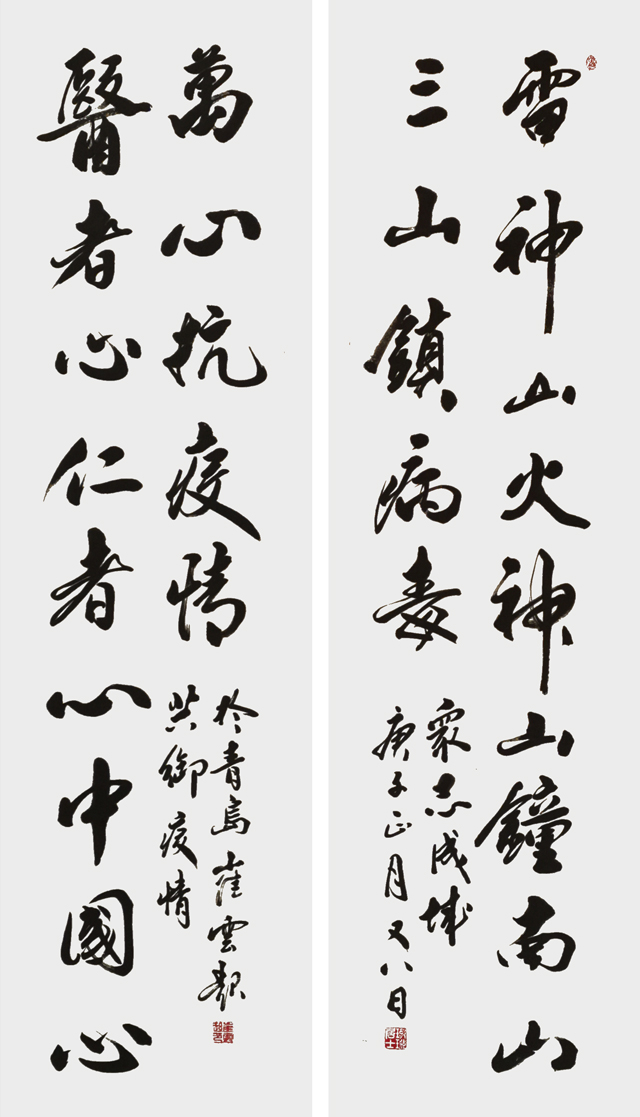 雷神山火神山鐘南山
三山鎮病毒
衆志成城
庚子正月又八日
醫者心仁者心中國心
萬心抗疫情
共御疫情
於青島崔雲